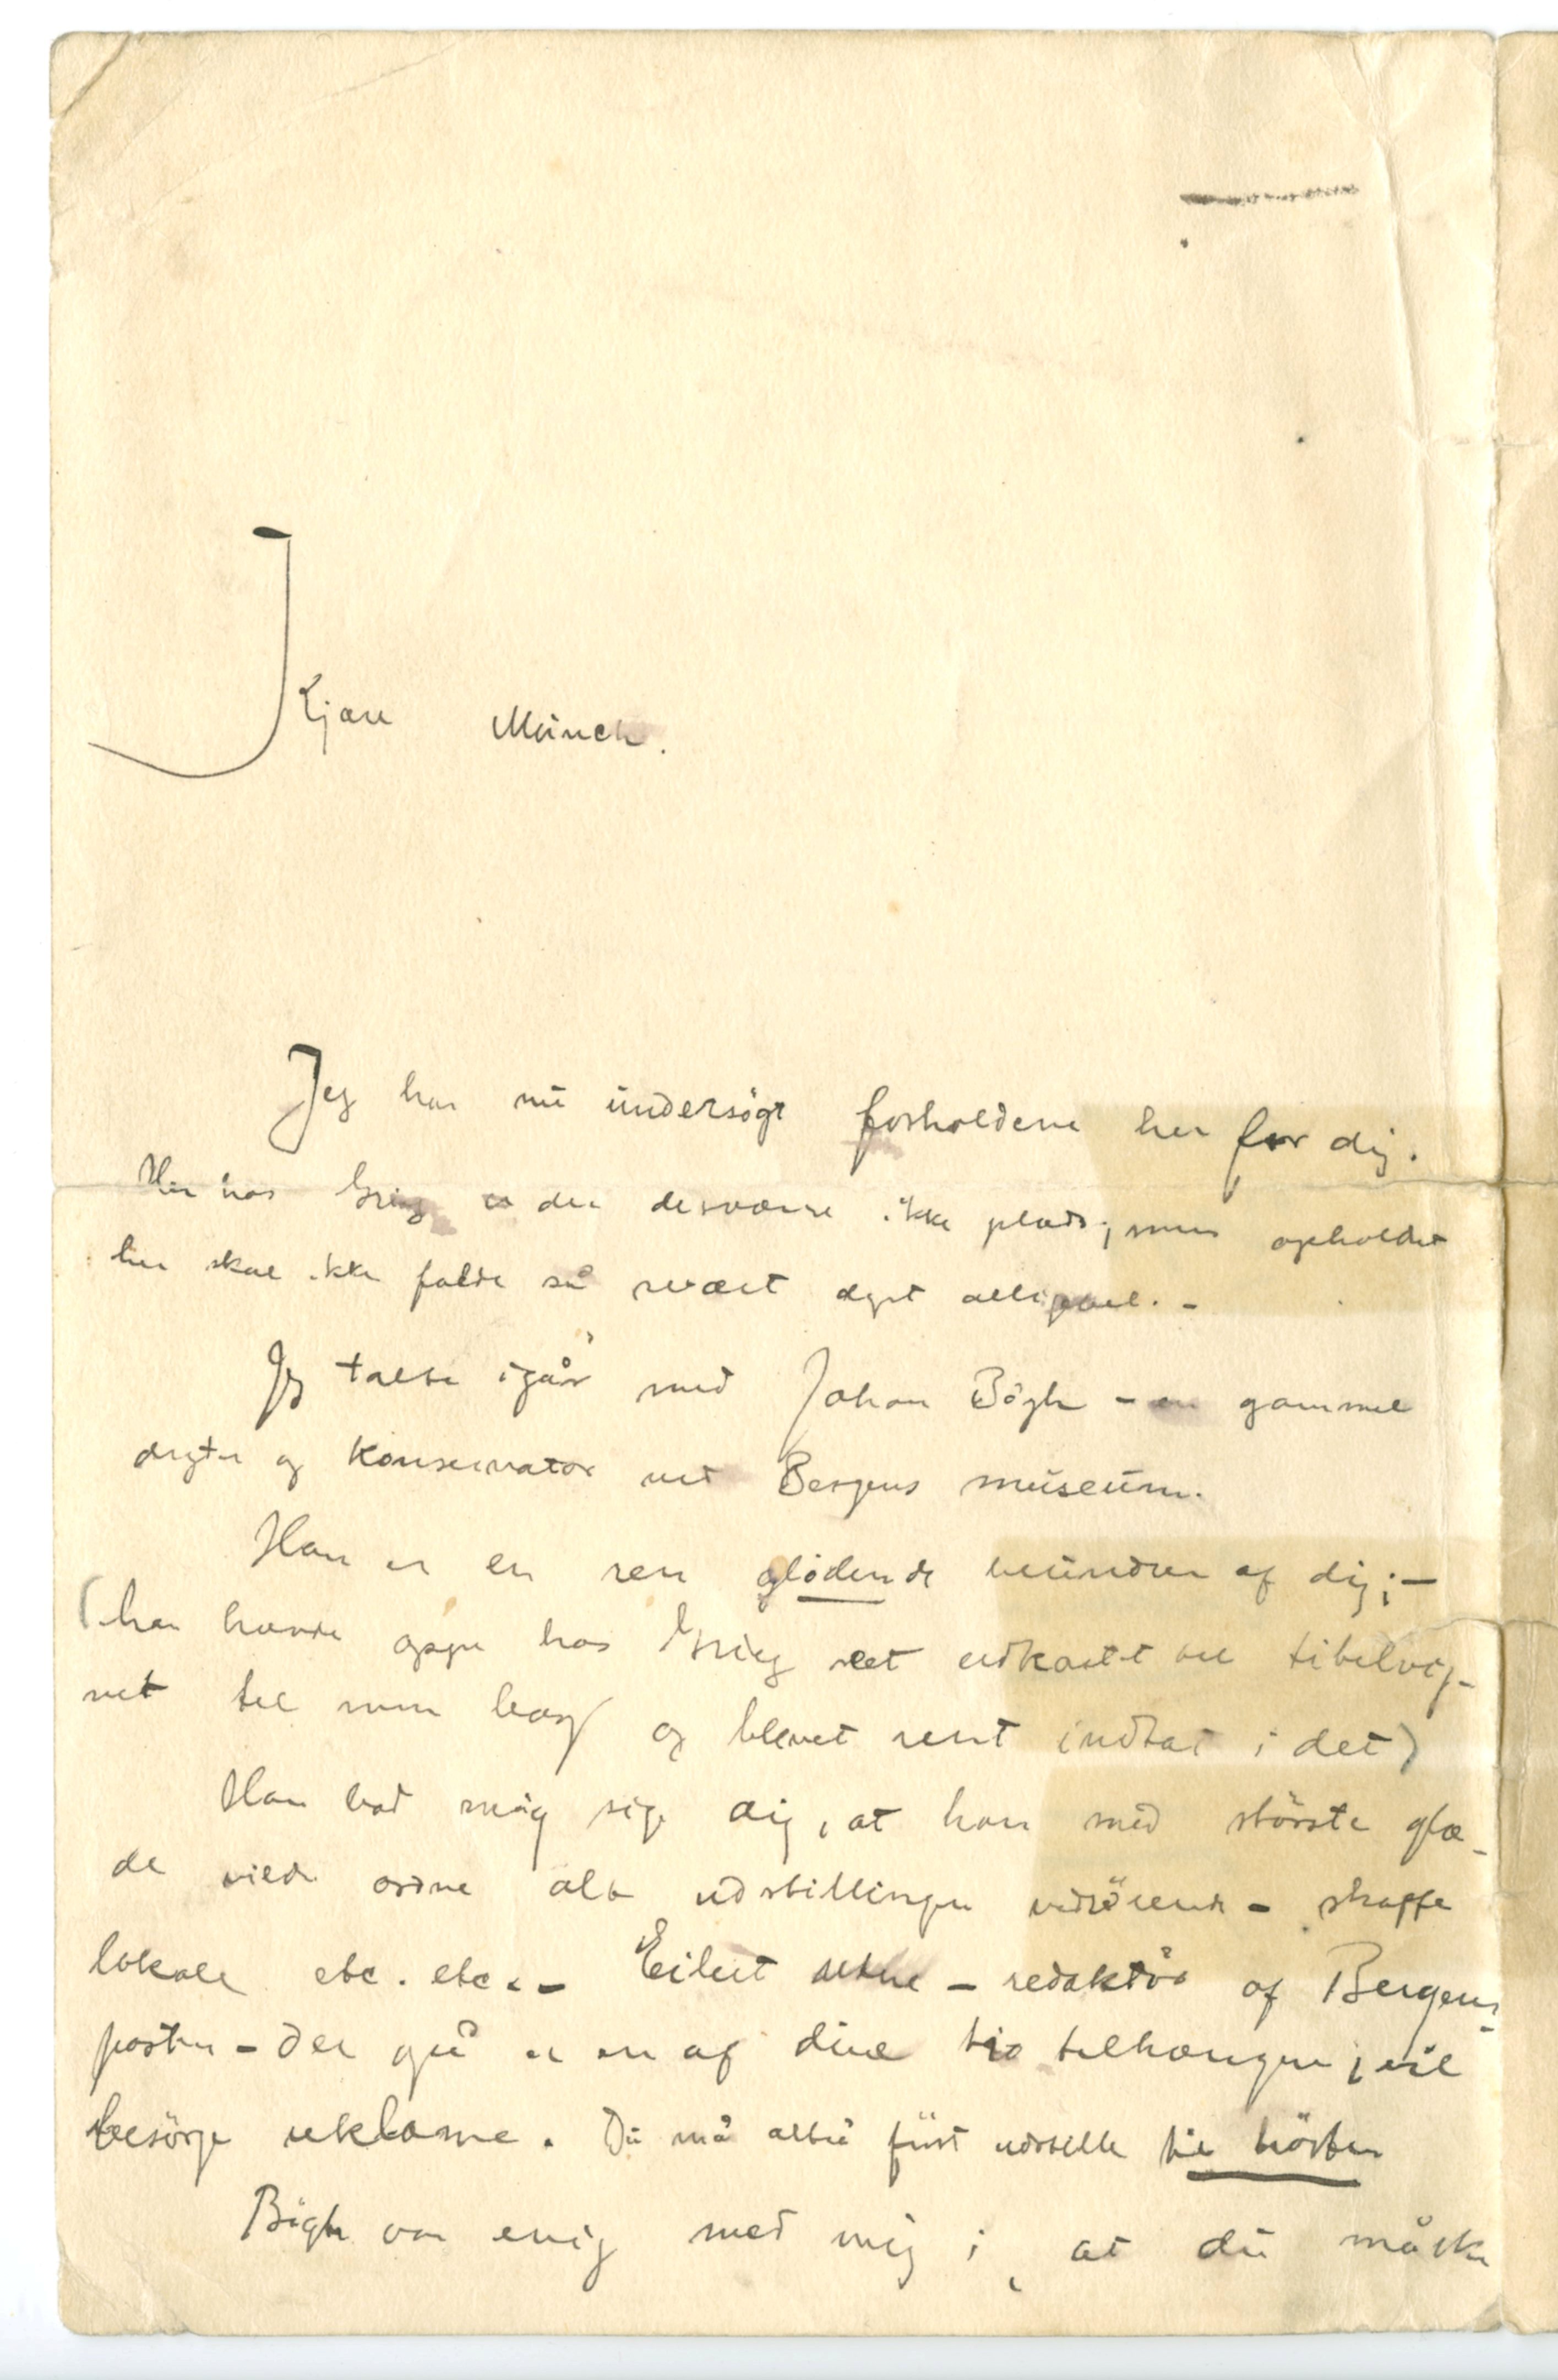 Kjære Münch.
Jeg har nü ündersögt forholdene her for dig.
Her hos Grieg er der desværre ikke plads; men opholdet
her skal ikke falde så svært dyrt alligevel. -
Jeg talte igår med Johan Bögh - en gammel
digter og konservator ved Bergens müseüm.
Han er en ren glödende beündrer af dig; -
(han havde oppe hos Grieg set udkastet til titelvig-
net til min bog og blevet rent indtat i det)
Han bad mig sige dig, at han med störste glæ-
de vilde ordne alt udstillingen vedrörende - skaffe
lokale etc. etc. - Eilert - redaktör af Bergens-
posten - der også er en af dine tro tilhængere, vil
besörge reklame. Dü må altså först udstille til hösten
Bögh var enig med mig i, at dü måske